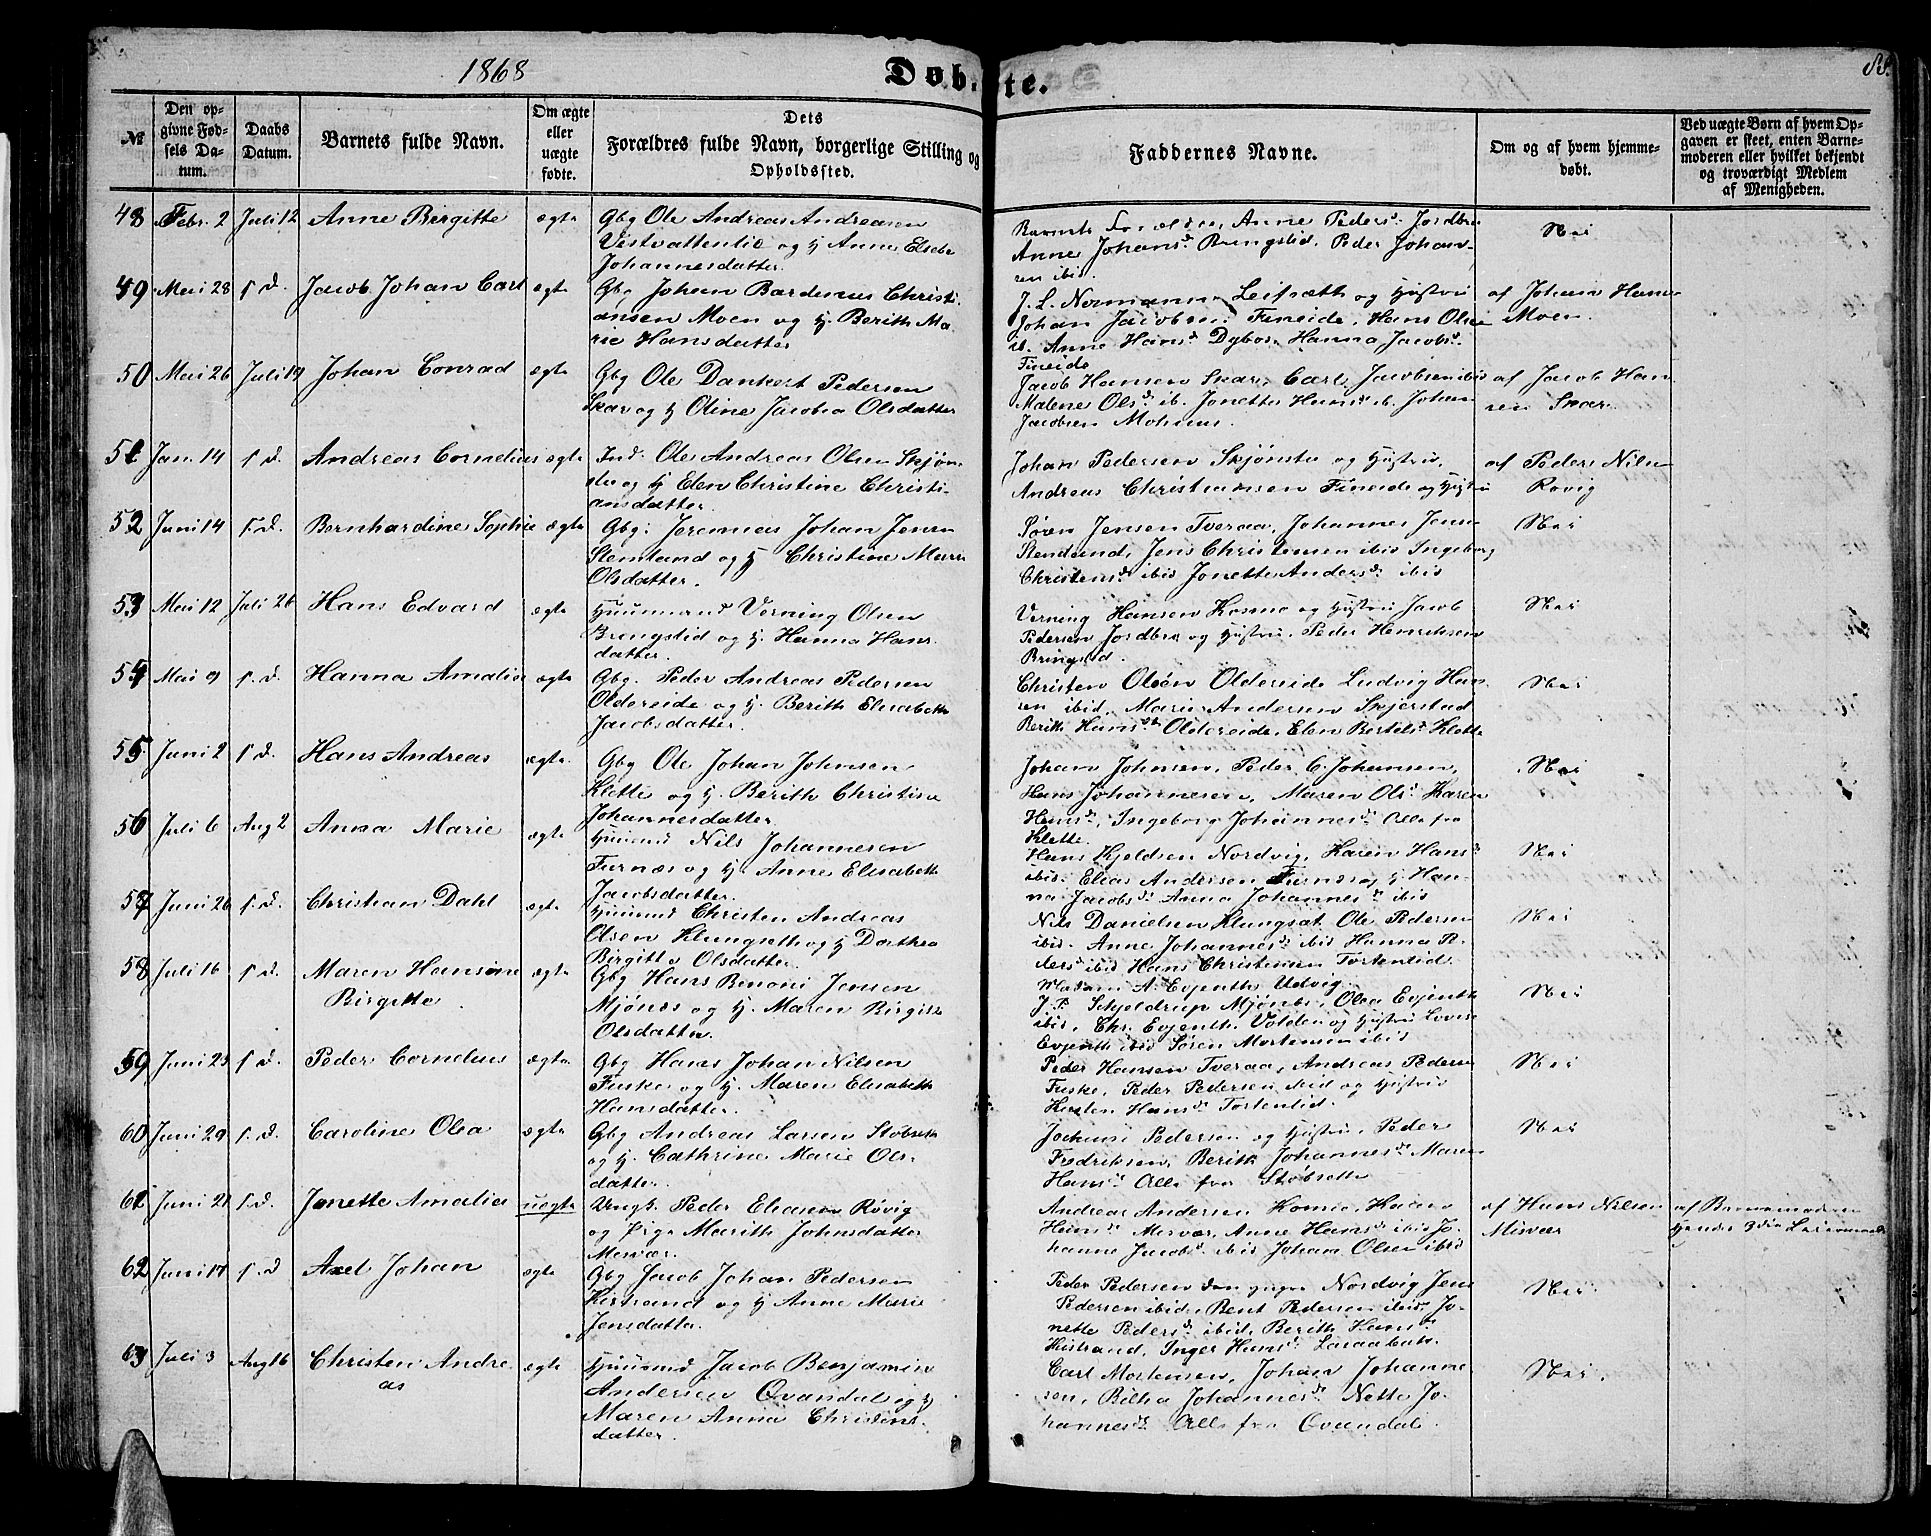 1868
Døbte.
88.
№
Den opgivne Fødsels Datum.
Daabs Datum.
Barnets fulde Navn.
Om ægte eller uægte fødte.
Dets Forældres fulde Navn, borgerlige Stilling og Opholdssted.
Faddernes Navne.
Om og af hvem hjemmedøbt.
Ved uægte Børn af hvem Opgaven er skeet, enten Barnemoderen eller hvilket bekjendt og troværdigt Medlem af Menigheden.
48 Febr. 2 Juli 12 Anne Birgitte ægte Gbg Ole Andreas Andreasen
Vestvattenlie og H Anne Elsebe
Johannesdatter.
Barnets Forældre, Anne Pedersd. Jordbru
Anne Johansd. Bringslid. Peder Johan-
sen ibid.
Nei
49 Mai 28 s. d. Jacob Johan Carl ægte Gbg Johan Bardinus Christi-
ansen Moen og H. Berith Ma-
rie Hansdatter
J. L. Normann Leifsæth og Hustru
Johan Jacobsen Fineide. Hans Olsen
ib. Anne Hansd. Dybos. Hanna Jacobsd.
Fineide
af Johan Hans
Moen.
50 Mai 26 Juli 19 Johan Conrad ægte Gbg Ole Dankert Pedersen
Skar og H Oline Jacobea Olsdatter
Jacob Hansen Skar. Carl Jacobsen ibid
Malene Olsd. ib. Jonette Hansd. ib. Johan
Jacobsen
af Jacob Han
sen Skar
51 Jan. 14 s. d. Andreas Cornelius ægte Ind. Ole Andreas Olsen Skjøn-
stu og H Elen Christine Christi-
ansdatter.
Johan Pedersen Skjønstu og Hustru,
Andreas Christiansen Fineide og Hustru
af Peder Nils
Røvig
52 Juni 14 s. d. Bernhardine Sophie ægte Gbg. Jeremias Johan Jensen
Stemland og H Christine Marie
Olsdatter.
Søren Jensen Tveraa, Johannes Jensen
Stemland, Jens Christensen ibid Ingeborg
Christensd. ibid Jonette Andersd. ibid
Nei
53 Mai 12 Juli 26 Hans Edvard ægte Huusmand Verning Olsen
Brengslid og H. Hanna Hans-
datter.
Verning Hansen Kosmo og Hustru Jacob
Pedersen Jordbru og Hustru, Peder Henriksen
Bringslid.
Nei
54 Mai 9 s. d. Hanna Amalie ægte Gbg. Peder Andreas Pedersen
Oldereide og H. Berith Elisabeth
Jacobsdatter.
Christen Olsen Oldereide Ludvig Han
sen ibid. Marie Andersen Skjerstad
Berith Hansd. Oldereide, Elen Bertelsd. Klette
Nei
55 Juni 2 s. d. Hans Andreas ægte. Gbg Ole Johan Johnsen
Klette og H. Berith Christine
Johannesdatter
Johan Johnsen, Peder C. Johansen,
Hans Johannesen, Maren Olsd. Karen
Hansd., Ingeborg Johannesd. Alle fra
Klette.
Nei
56 Juli 6 Aug 2 Anna Marie ægte Huusmd Nils Johannesen
Furnæs og H. Anne Elisabeth
Jacobsdatter.
Hans Kjeldsen Nordvig, Karen Hansd.
ibid. Elias Andersen Furnæs og H. Han-
na Jacobsd. Anna Johannesd. ibid
Nei
57 Juni 26 s. d. Christian Dahl ægte Huusmd Christen Andreas
Olsen Klungseth og H Dorthea
Birgitte Olsdatter.
Nils Danielsen Klungsat. Ole Pedersen
ibid. Anne Johannesd. ibid Hanna P.
dersd. ibid Hans Christensen Tortenlid.
Nei
58 Juli 16 s. d. Maren Hansine
Birgitte
ægte Gbg Hans Benoni Jensen
Mjønes og H. Maren Birgitte
Olsdatter.
Madam A. Evjenth Udvig
J. P. Schjeldrup Mjønes, Olea Evjenth
ibid, Chr. Evjenth Volden og Hustru Lovise
Evjenth ibid Søren Mortensen ibid
Nei
59 Juni 23 s. d. Peder Cornelius ægte Gbg Hans Johan Nilsen
Fuske og H. Maren Elisabeth
Hansdatter.
Peder Hansen Tveraa, Andreas Pedersen
Fuske, Peder Pedersen ibid og Hustru
Kirsten Hansd. Tortenlid.
Nei
60 Juni 29 s. d. Caroline Olea ægte Gbg Andreas Larsen Støbseth
og H. Cathrine Marie Ols-
datter.
Jochum Pedersen og Hustru, Peder
Fredriksen, Berith Johannesd. Maren
Hansd. Alle fra Støbsette
Nei
61 Juni 21 s. d. Jonette Amalia uægte Ungk. Peder Eliasen Røvig
og Pige Marith Johnsdatter
Mesvær.
Andreas Andersen Karen
Hansd. Mesvær, Anne Hansd. ibid Jo-
hanne Jacobsd. ibid Johan Olsen ibid
af Hans Nilsen
Misvær
af Barnemoderen
hendes 3die Leiermaal
62 Juni 17 s. d Axel Johan ægte Gbg Jacob Johan Pedersen
Kistrand og H Anne Marie
Jensdatter.
Peder Pedersen den yngre Nordvig Jens
Pedersen ibid. Bent Pedersen ibid Jo-
nette Pedersd. ibid, Berith Hansd.
Kistrand, Inger Hansd.
Nei.
63 Juli 3 Aug 16 Christen Andre
as
ægte Huusmd Jacob Benjamin
Andersen Øvandal og H
Maren Anna Christens-
datter.
Carl Mortensen, Johan Johanne
sen, Bilha Johannesd. Nette Jo-
hannesd. Alle fra Øvandal.
Nei.